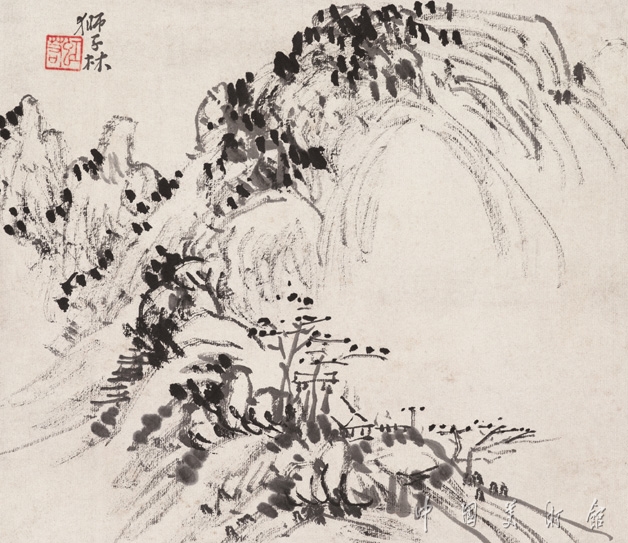 狮子林
中国美术馆